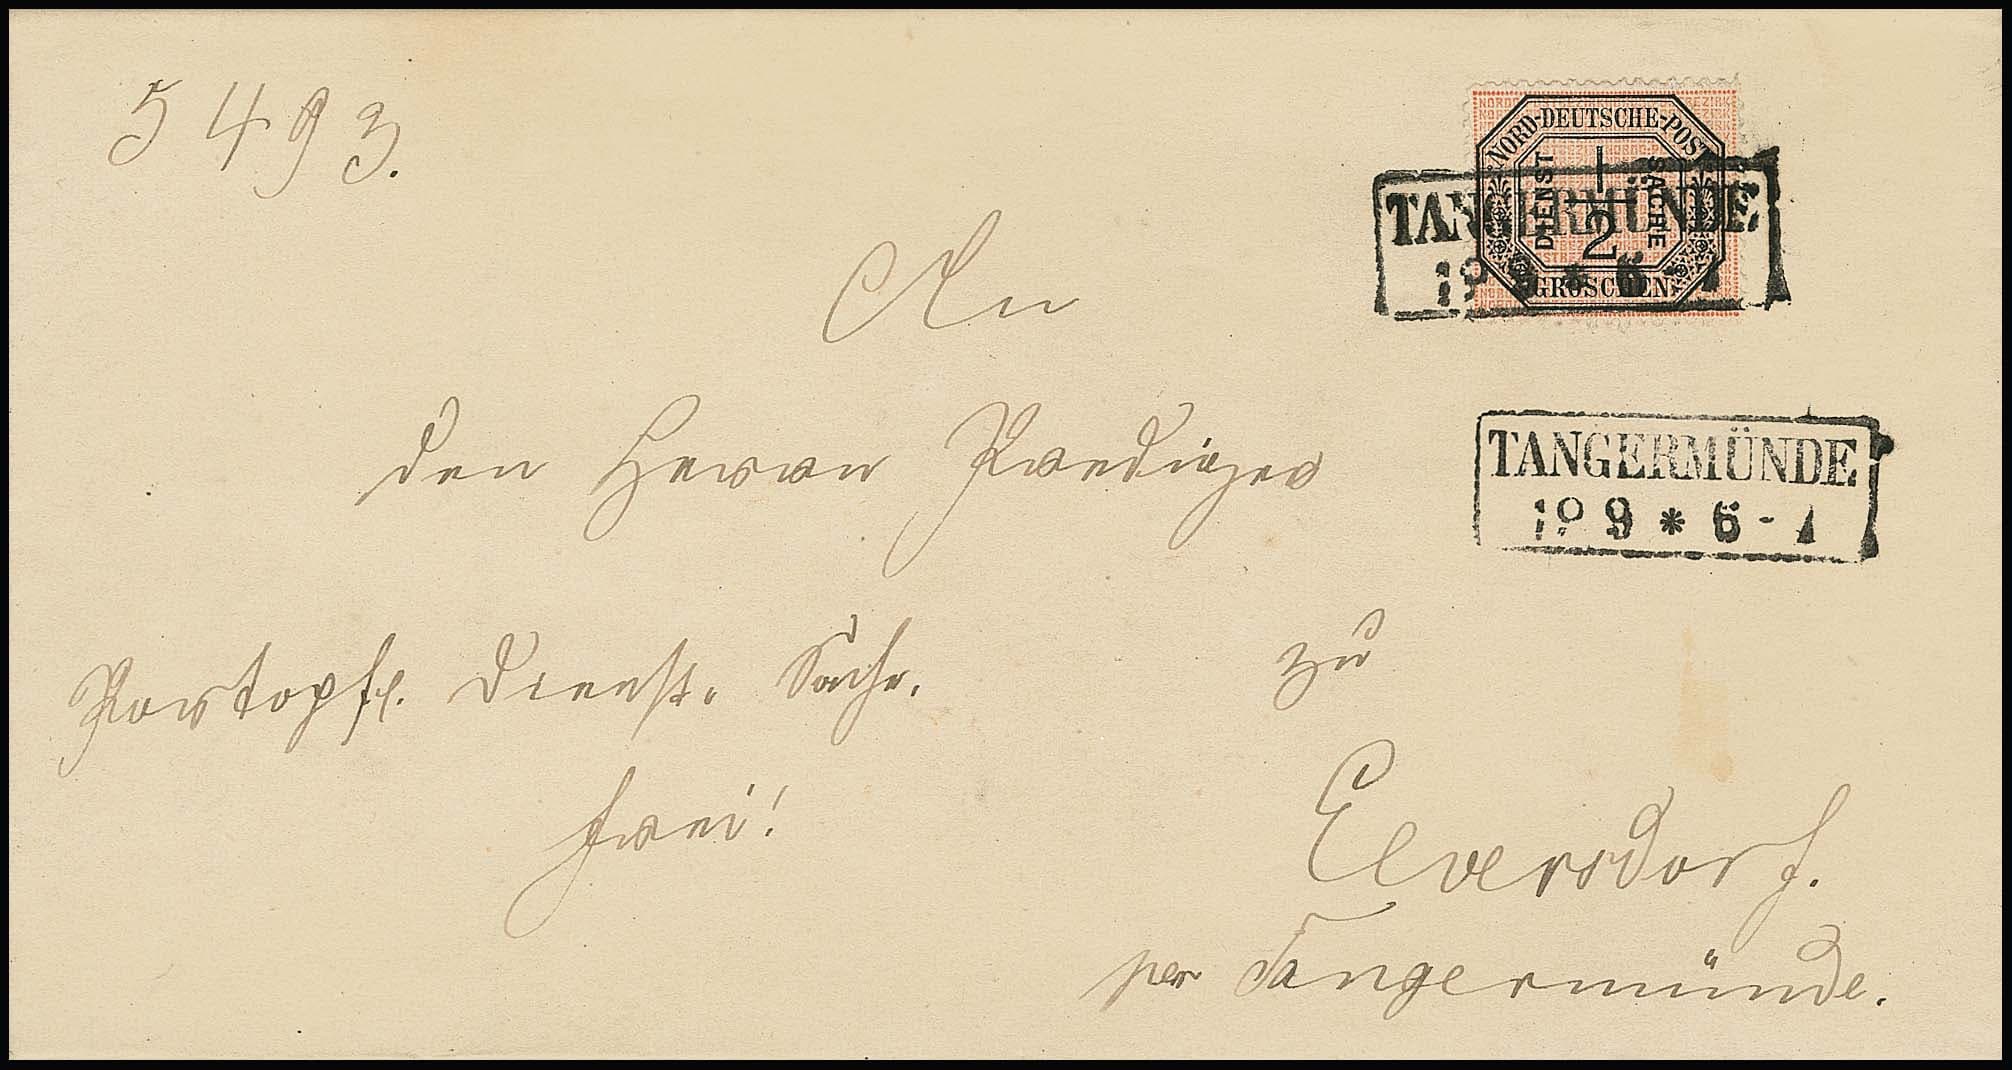 5493.
NORD-DEUTSCHE-POST
DIENST SACHE
1/2
GROSCHEN
TANGERMÜNDE
19 9 * 6 - 7
An
den Herrn Prediger
TANGERMÜNDE
19 9 * 6 - 7
Portopfl. Dienst. Sache.
frei!
zu
Elversdorf.
per Tangermünde.